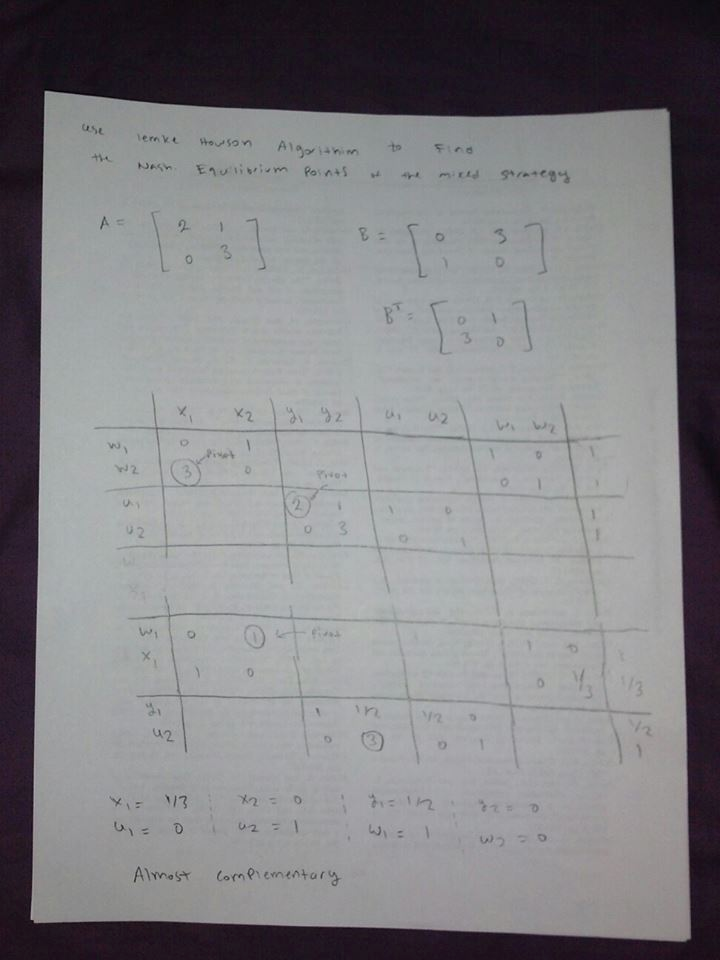 use lemke Howson Algorithim to Find
the Nash Equilibrium Points of the mixed strategy
A = [ 2 1
0 3 ]
B = [ 0 3
1 0 ]
B^T = [ 0 1
3 0 ]
x1 x2 y1 y2 u1 u2 w1 w2
w1 0 1 1 0 1
w2 3 Pivot 0 0 1 1
u1 2 Pivot 1 1 0 1
u2 0 3 0 1 1
w
x1
w1 0 1 ← Pivot 1 0 1
x1 1 0 0 1/3 1/3
y1 1 1/2 1/2 0 1/2
u2 0 3 0 1 1
x1 = 1/3 x2 = 0 y1 = 1/2 y2 = 0
u1 = 0 u2 = 1 w1 = 1 w2 = 0
Almost complementary